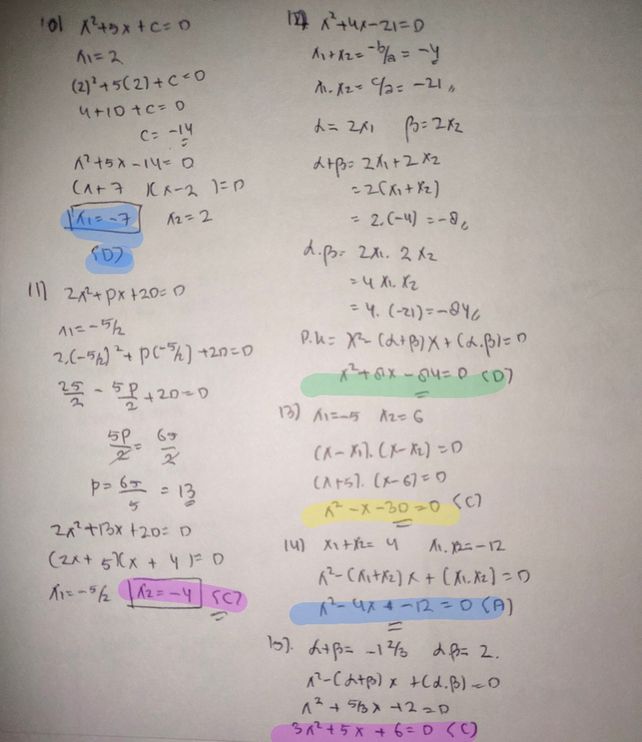 10) x²+5x+c=0
x1=2
(2)²+5(2)+c=0
4+10+c=0
c=-14
x²+5x-14=0
(x+7)(x-2)=0
x1=-7 x2=2
(D)
11) 2x²+px+20=0
x1=-5/2
2.(-5/2)²+p(-5/2)+20=0
25/2 - 5p/2 +20=0
5p/2 = 65/2
p= 65/5 = 13
2x²+13x+20=0
(2x+5)(x+4)=0
x1=-5/2 x2=-4 (C)
12) x²+4x-21=0
x1+x2= -b/a = -4
x1.x2= c/a= -21
α=2x1 β=2x2
α+β= 2x1+2x2
=2(x1+x2)
= 2.(-4) =-8
α.β= 2x1. 2x2
=4 x1.x2
=4.(-21)=-84
P.k= x²-(α+β)x+(α.β)=0
x²+8x-84=0 (D)
13) x1=-5 x2=6
(x-x1).(x-x2)=0
(x+5).(x-6)=0
x²-x-30=0 (C)
14) x1+x2= 4 x1.x2=-12
x²-(x1+x2)x+(x1.x2)=0
x²-4x+-12=0 (A)
15). α+β= -1 2/3 αβ= 2.
x²-(α+β)x+(α.β)=0
x²+5/3x+2=0
3x²+5x+6=0 (C)